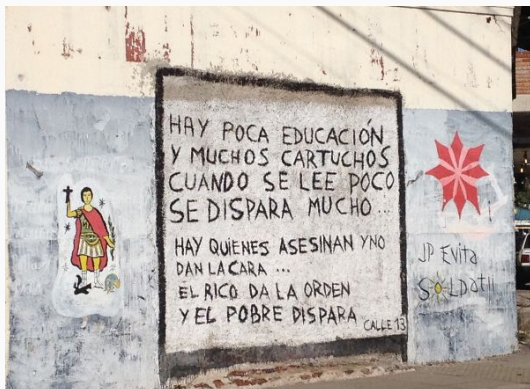 HAY POCA EDUCACIÓN
Y MUCHOS CARTUCHOS
CUANDO SE LEE POCO
SE DISPARA MUCHO...
HAY QUIENES ASESINAN Y NO
DAN LA CARA ...
EL RICO DA LA ORDEN
Y EL POBRE DISPARA
CALLE 13
JP Evita
SOLDATII